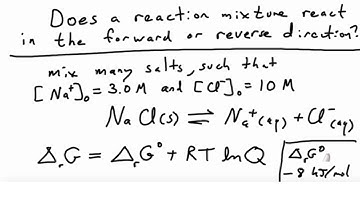 Does a reaction mixture react
in the forward or reverse direction?
mix many salts, such that
[Na⁺]₀ = 3.0 M and [Cl⁻]₀ = 10 M
NaCl(s) ⇌ Na⁺(aq) + Cl⁻(aq)
ΔᵣG = ΔᵣG° + RT ln Q
ΔᵣG°
-8 kJ/mol